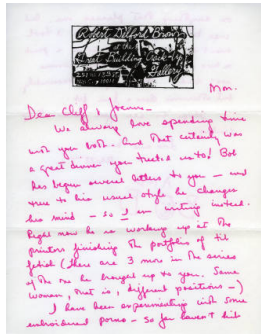 Robert Delford Brown
at the
Great Building Crack-Up
Gallery
Mon.
Dear Cliff & Joanne—
We always love spending time
with you both. And that certainly was
a great dinner you treated us to! Bob
has begun several letters to you — and
true to his usual style he changes
his mind — so I am writing instead.
Right now he is working up at the
printers finishing the portfolio of tit
fetish (there are 3 more in the series
of the one he brought up to you. Same
woman, that is, different positions —)
I have been experimenting with some
embroidered porno — so far haven't hit